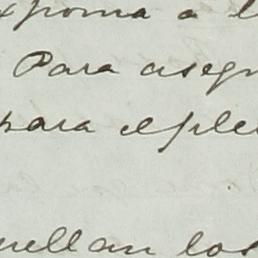 xponia a l
Para asegu
para el ple
uellan los